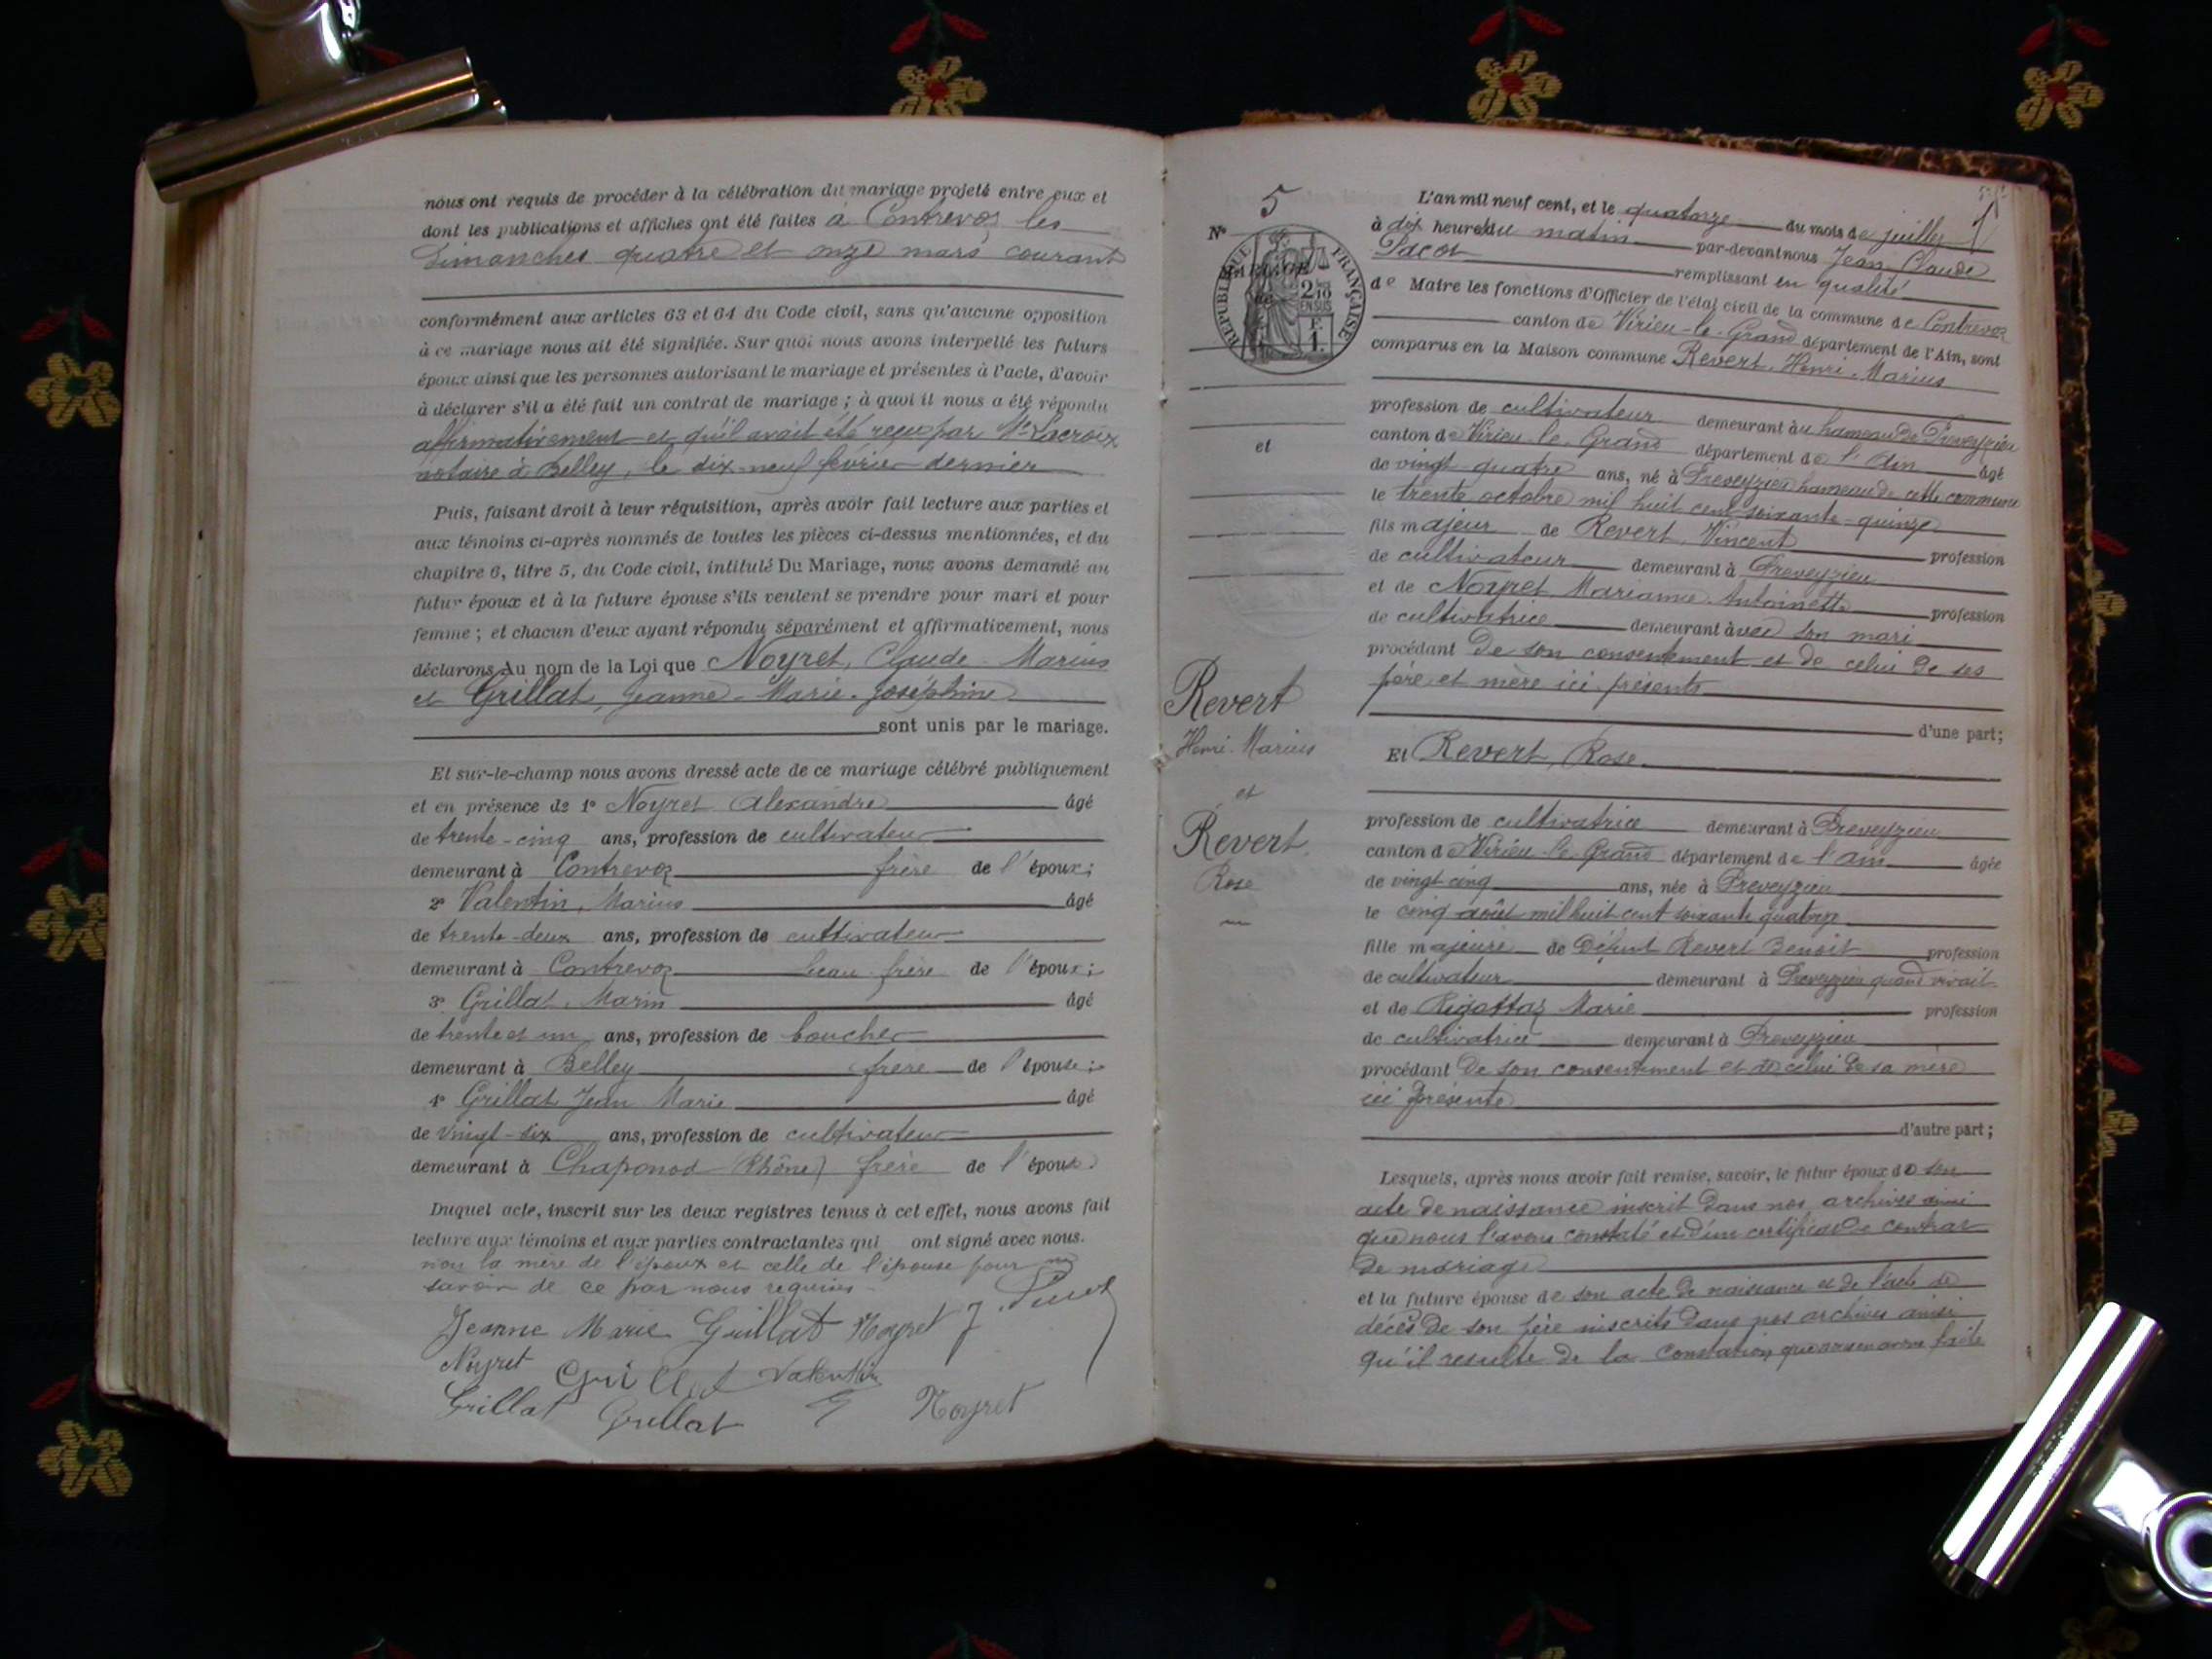 nous ont requis de procéder à la célébration du mariage projeté entre eux et
dont les publications et affiches ont été faites à Contrevoz les
Dimanches quatre et onze mars courant
conformément aux articles 63 et 64 du Code civil, sans qu'aucune opposition
à ce mariage nous ait été signifiée. Sur quoi nous avons interpellé les futurs
époux ainsi que les personnes autorisant le mariage et présentes à l'acte, d'avoir
à déclarer s'il a été fait un contrat de mariage ; à quoi il nous a été répondu
affirmativement et qu'il avait été reçu par Me Lacroix
notaire à Belley, le dix-neuf fevrier dernier
Puis, faisant droit à leur réquisition, après avoir fait lecture aux parties et
aux témoins ci-après nommés de toutes les pièces ci-dessus mentionnées, et du
chapitre 6, titre 5, du Code civil, intitulé Du Mariage, nous avons demandé au
futur époux et à la future épouse s'ils veulent se prendre pour mari et pour
femme ; et chacun d'eux ayant répondu séparément et affirmativement, nous
déclarons Au nom de la Loi que Noyret, Claude-Marius
et Grillat, Jeanne-Marie-Joséphine
sont unis par le mariage.
Et sur-le-champ nous avons dressé acte de ce mariage célébré publiquement
et en présence de 1° Noyret Alexandre âgé
de trente-cinq ans, profession de cultivateur
demeurant à Contrevoz frère de l'époux ;
2° Valentin, Marius âgé
de trente-deux ans, profession de cultivateur
demeurant à Contrevoz beau-frère de l'époux ;
3° Grillat, Marin âgé
de trente et un ans, profession de boucher
demeurant à Belley frère de l'épouse ;
4° Grillat Jean Marie âgé
de vingt-six ans, profession de cultivateur
demeurant à Chaponod (Rhône) frère de l'épouse
Duquel acte, inscrit sur les deux registres tenus à cet effet, nous avons fait
lecture aux témoins et aux parties contractantes qui ont signé avec nous.
non la mère de l'époux et celle de l'épouse pour ne
savoir de ce par nous requises
Jeanne Marie Grillat Noyret J.
Noyret Grillat Valentin
Grillat Grillat Noyret
N° 5
RÉPUBLIQUE FRANÇAISE
MARIAGE
de
2/10 EN SUS
F. 1.
et
Revert
Henri-Marius
et
Revert
Rose
L'an mil neuf cent, et le quatorze du mois de juillet
à dix heures du matin par-devant nous Jean Claude
Pacot remplissant en qualité
de Maire les fonctions d'Officier de l'état civil de la commune de Contrevoz
canton de Virieu-le-Grand département de l'Ain, sont
comparus en la Maison commune Revert, Henri-Marius
profession de cultivateur demeurant au hameau de Preveyzieu
canton de Virieu-le-Grand département de l'Ain âgé
de vingt-quatre ans, né à Preveyzieu hameau de cette commune
le trente octobre mil huit cent soixante-quinze
fils majeur de Revert, Vincent profession
de cultivateur demeurant à Preveyzieu
et de Noyret Marianne Antoinette profession
de cultivatrice demeurant avec son mari
procédant de son consentement et de celui de ses
père et mère ici présents
d'une part ;
Et Revert, Rose
profession de cultivatrice demeurant à Preveyzieu
canton de Virieu-le-Grand département de l'ain âgée
de vingt-cinq ans, née à Preveyzieu
le cinq août mil huit cent soixante quatorze
fille majeure de Défunt Revert Benoit profession
de cultivateur demeurant à Preveyzieu quand vivait
et de Rigottaz Marie profession
de cultivatrice demeurant à Preveyzieu
procédant de son consentement et de celui de sa mère
ici présente
d'autre part ;
Lesquels, après nous avoir fait remise, savoir, le futur époux de son
acte de naissance inscrit dans nos archives ainsi
que nous l'avons constaté et d'un certificat de contrat
de mariage
et la future épouse de son acte de naissance et de l'acte de
décès de son père inscrits dans nos archives ainsi
qu'il resulte de la constation que nous en avons faite